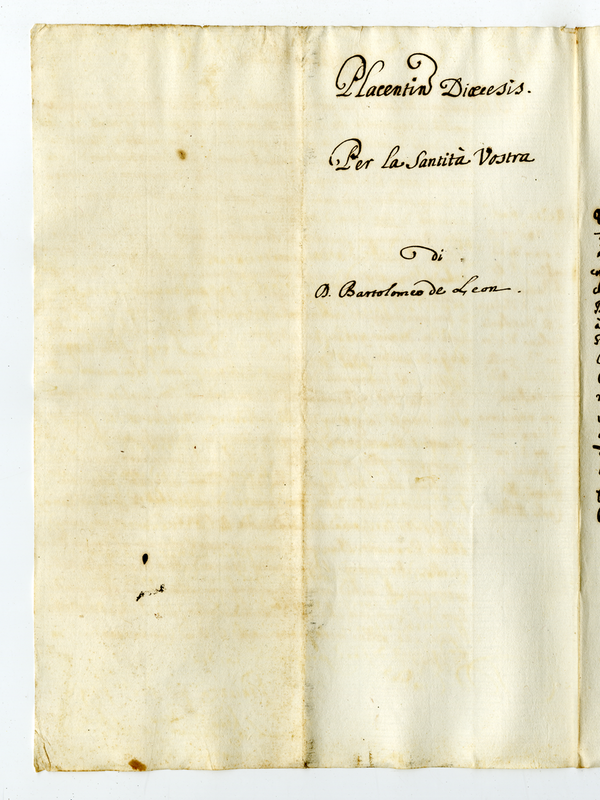 Placentin Diœcesis.
Per la Santità Vostra
di
D. Bartolomeo de Leon.